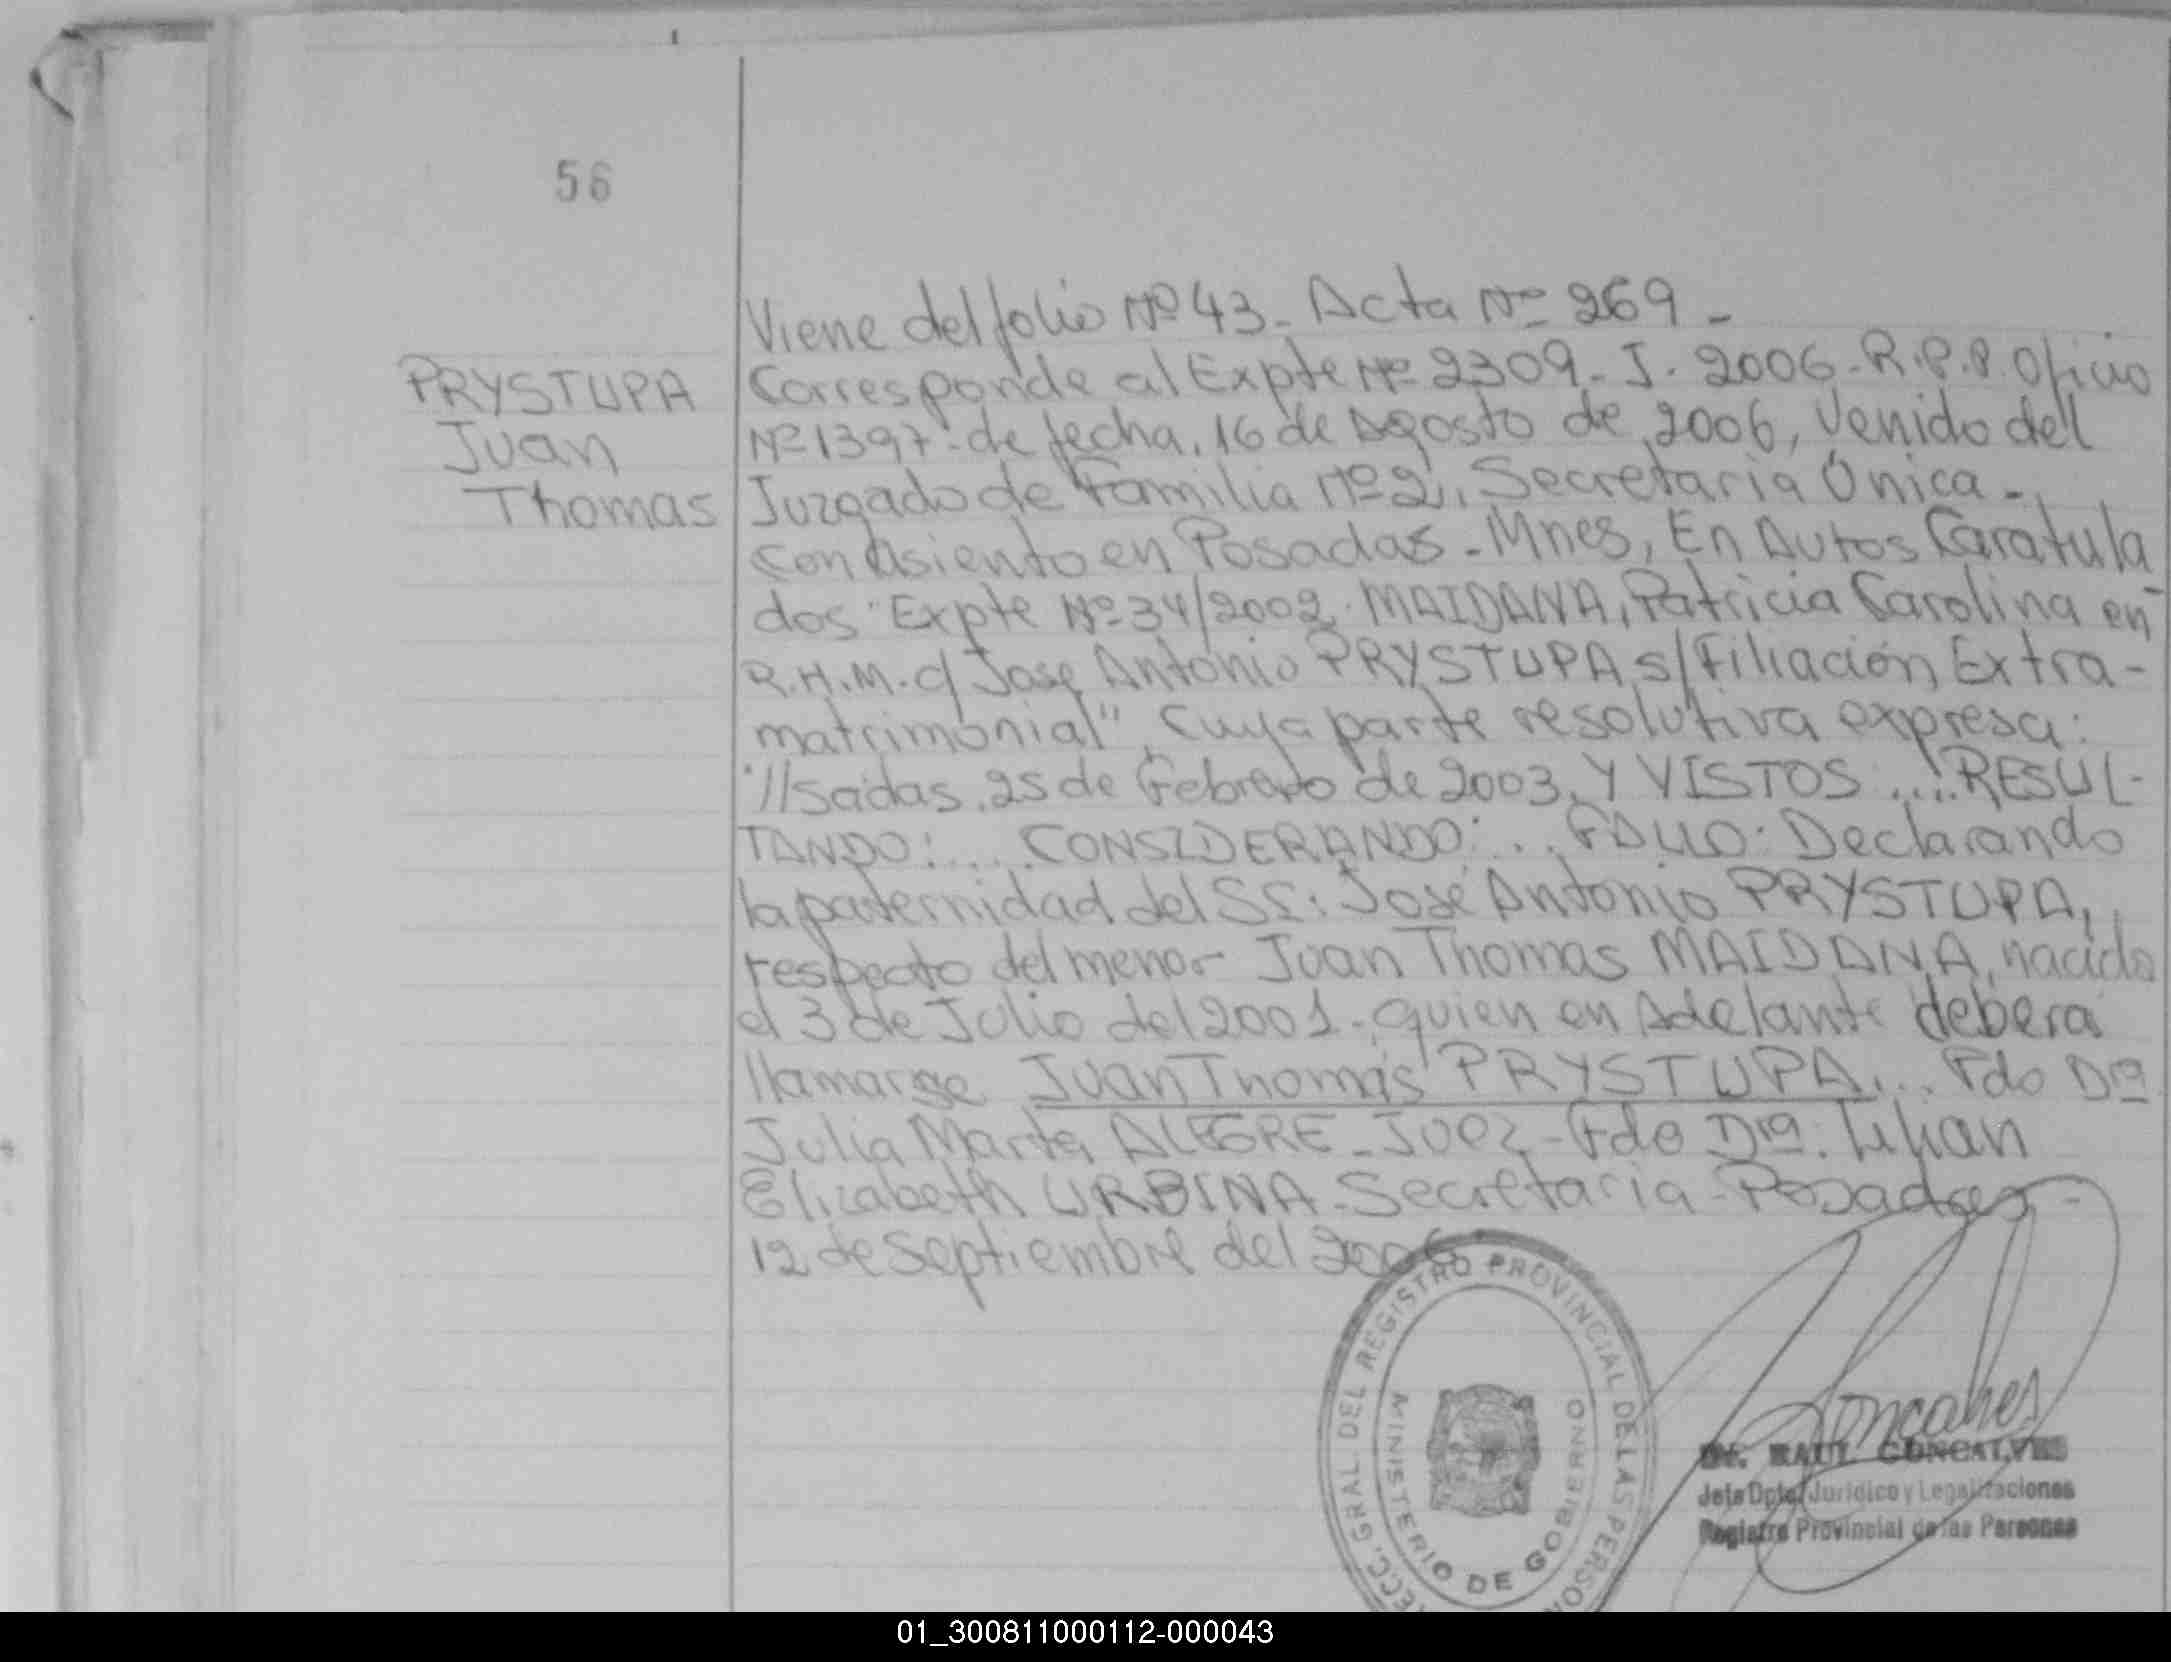 56
Viene del folio Nº 43 - Acta Nº 269 -
PRYSTUPA
Juan
Thomas
Corresponde al Expte Nº 2309 - J. 2006 - R.P.P. Oficio
Nº 1397 - de fecha, 16 de Agosto de 2006, Venido del
Juzgado de Familia Nº 2, Secretaria Única -
con Asiento en Posadas - Mnes, En Autos Caratula
dos "Expte Nº 34/2002. MAIDANA, Patricia Carolina en
R.H.M. c/ Jose Antonio PRYSTUPA s/ Filiación Extra-
matrimonial", Cuya parte resolutiva expresa:
"//sadas, 25 de Febrero de 2003, Y VISTOS .... RESUL-
TANDO: .... CONSIDERANDO: ... FALLO: Declarando
la paternidad del Sr: José Antonio PRYSTUPA,
respecto del menor Juan Thomas MAIDANA, nacido
el 3 de Julio del 2001 - quien en Adelante deberá
llamarse Juan Thomas PRYSTUPA ... Fdo Dra
Julia Marta ALEGRE - Juez - Fdo Dra. Lilian
Elizabeth URBINA - Secretaria - Posadas -
12 de Septiembre del 2006
ECC. GRAL DEL REGISTRO PROVINCIAL DE LAS PERSON
MINISTERIO DE GOBIERNO
Goncalves
Dr. RAUL GONCALVES
Jefe Dpto. Juridico y Legalizaciones
Registro Provincial de las Personas
01_300811000112-000043